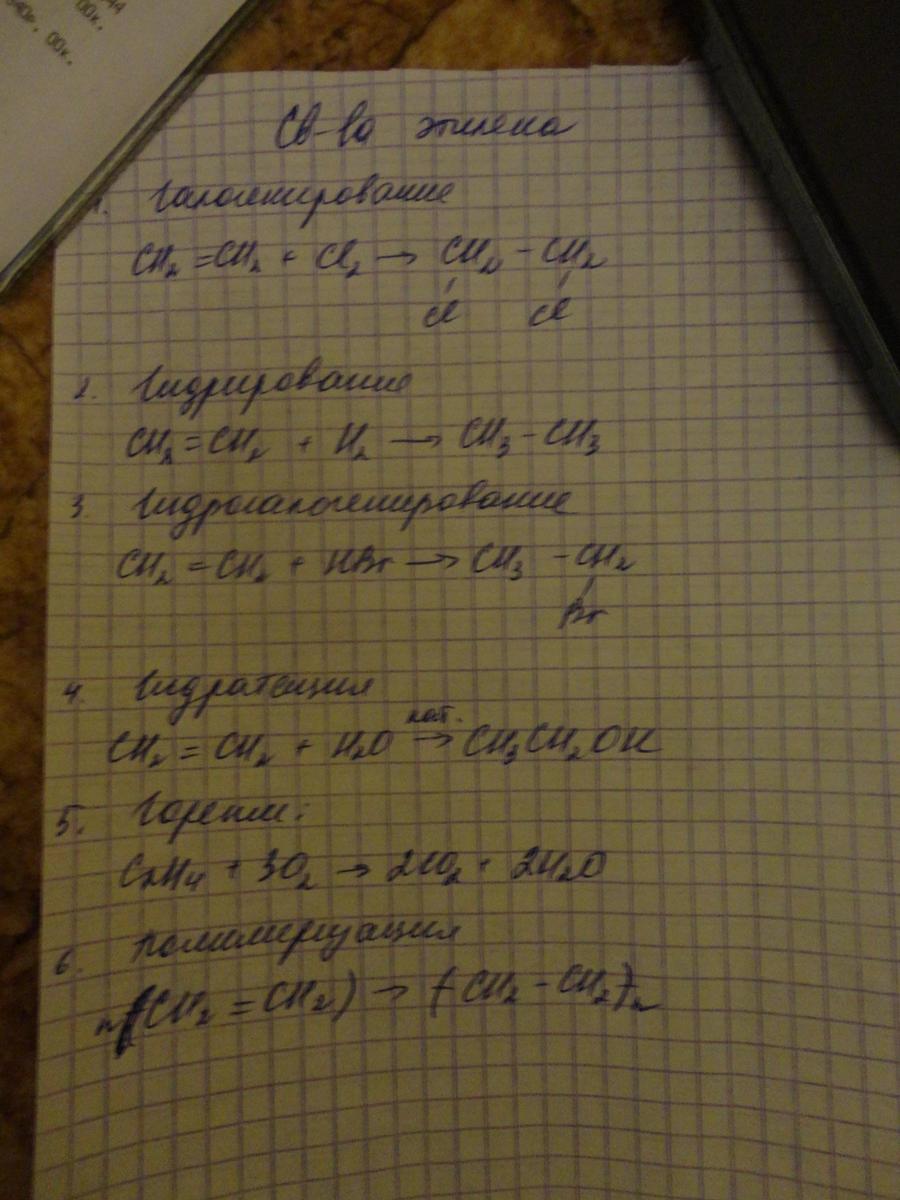 44
00к.
540г. 00к.
Св-ва этилена
1. Галогенирование
CH₂=CH₂ + Cl₂ → CH₂-CH₂
Cl Cl
2. Гидрирование
CH₂=CH₂ + H₂ → CH₃-CH₃
3. Гидрогалогенирование
CH₂=CH₂ + HBr → CH₃-CH₂
Br
4. Гидратация
кат.
CH₂=CH₂ + H₂O → CH₃CH₂OH
5. Горение:
C₂H₄ + 3O₂ → 2CO₂ + 2H₂O
6. Полимеризация
n(CH₂=CH₂) → (CH₂-CH₂)n